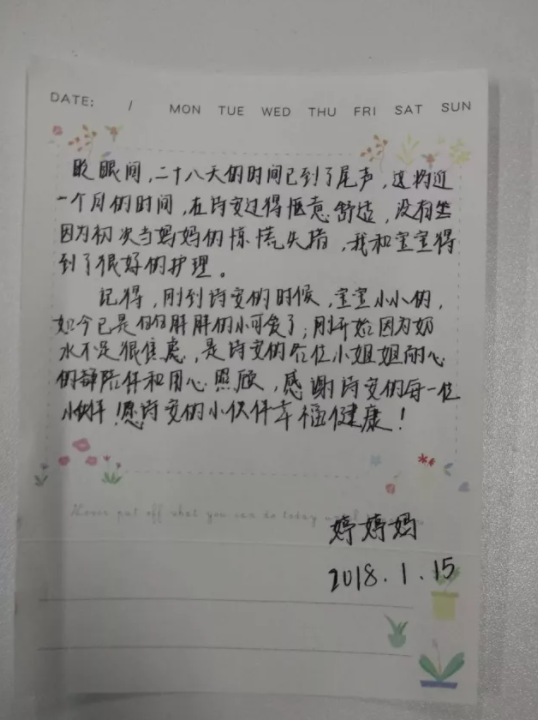 DATE: / MON TUE WED THU FRI SAT SUN
眨眼间,二十八天的时间已到了尾声,这将近
一个月的时间,在诗安过得惬意舒适,没有
因为初次当妈妈的惊慌失措,我和宝宝得
到了很好的护理。
记得,刚到诗安的时候,宝宝小小的,
如今已是白白胖胖的小可爱了;刚开始因为奶
水不足很焦虑,是诗安的各位小姐姐耐心
的陪伴和用心照顾,感谢诗安的每一位
小伙伴!愿诗安的小伙伴幸福健康!
Never put off what you can do today
婷婷妈
2018.1.15